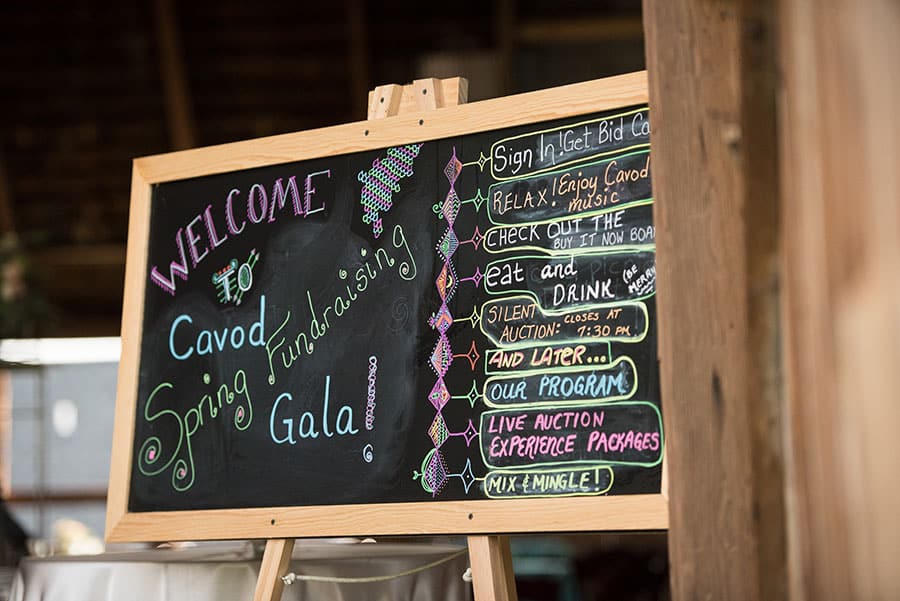 WELCOME
TO
Cavod
Spring Fundraising
Gala!
Sign In! Get Bid Ca
RELAX! Enjoy Cavod
music
CHECK OUT THE
BUY IT NOW BOAR
eat and
DRINK (BE
MERRY
SILENT CLOSES AT
AUCTION: 7:30 PM
AND LATER...
OUR PROGRAM
LIVE AUCTION
EXPERIENCE PACKAGES
MIX & MINGLE!